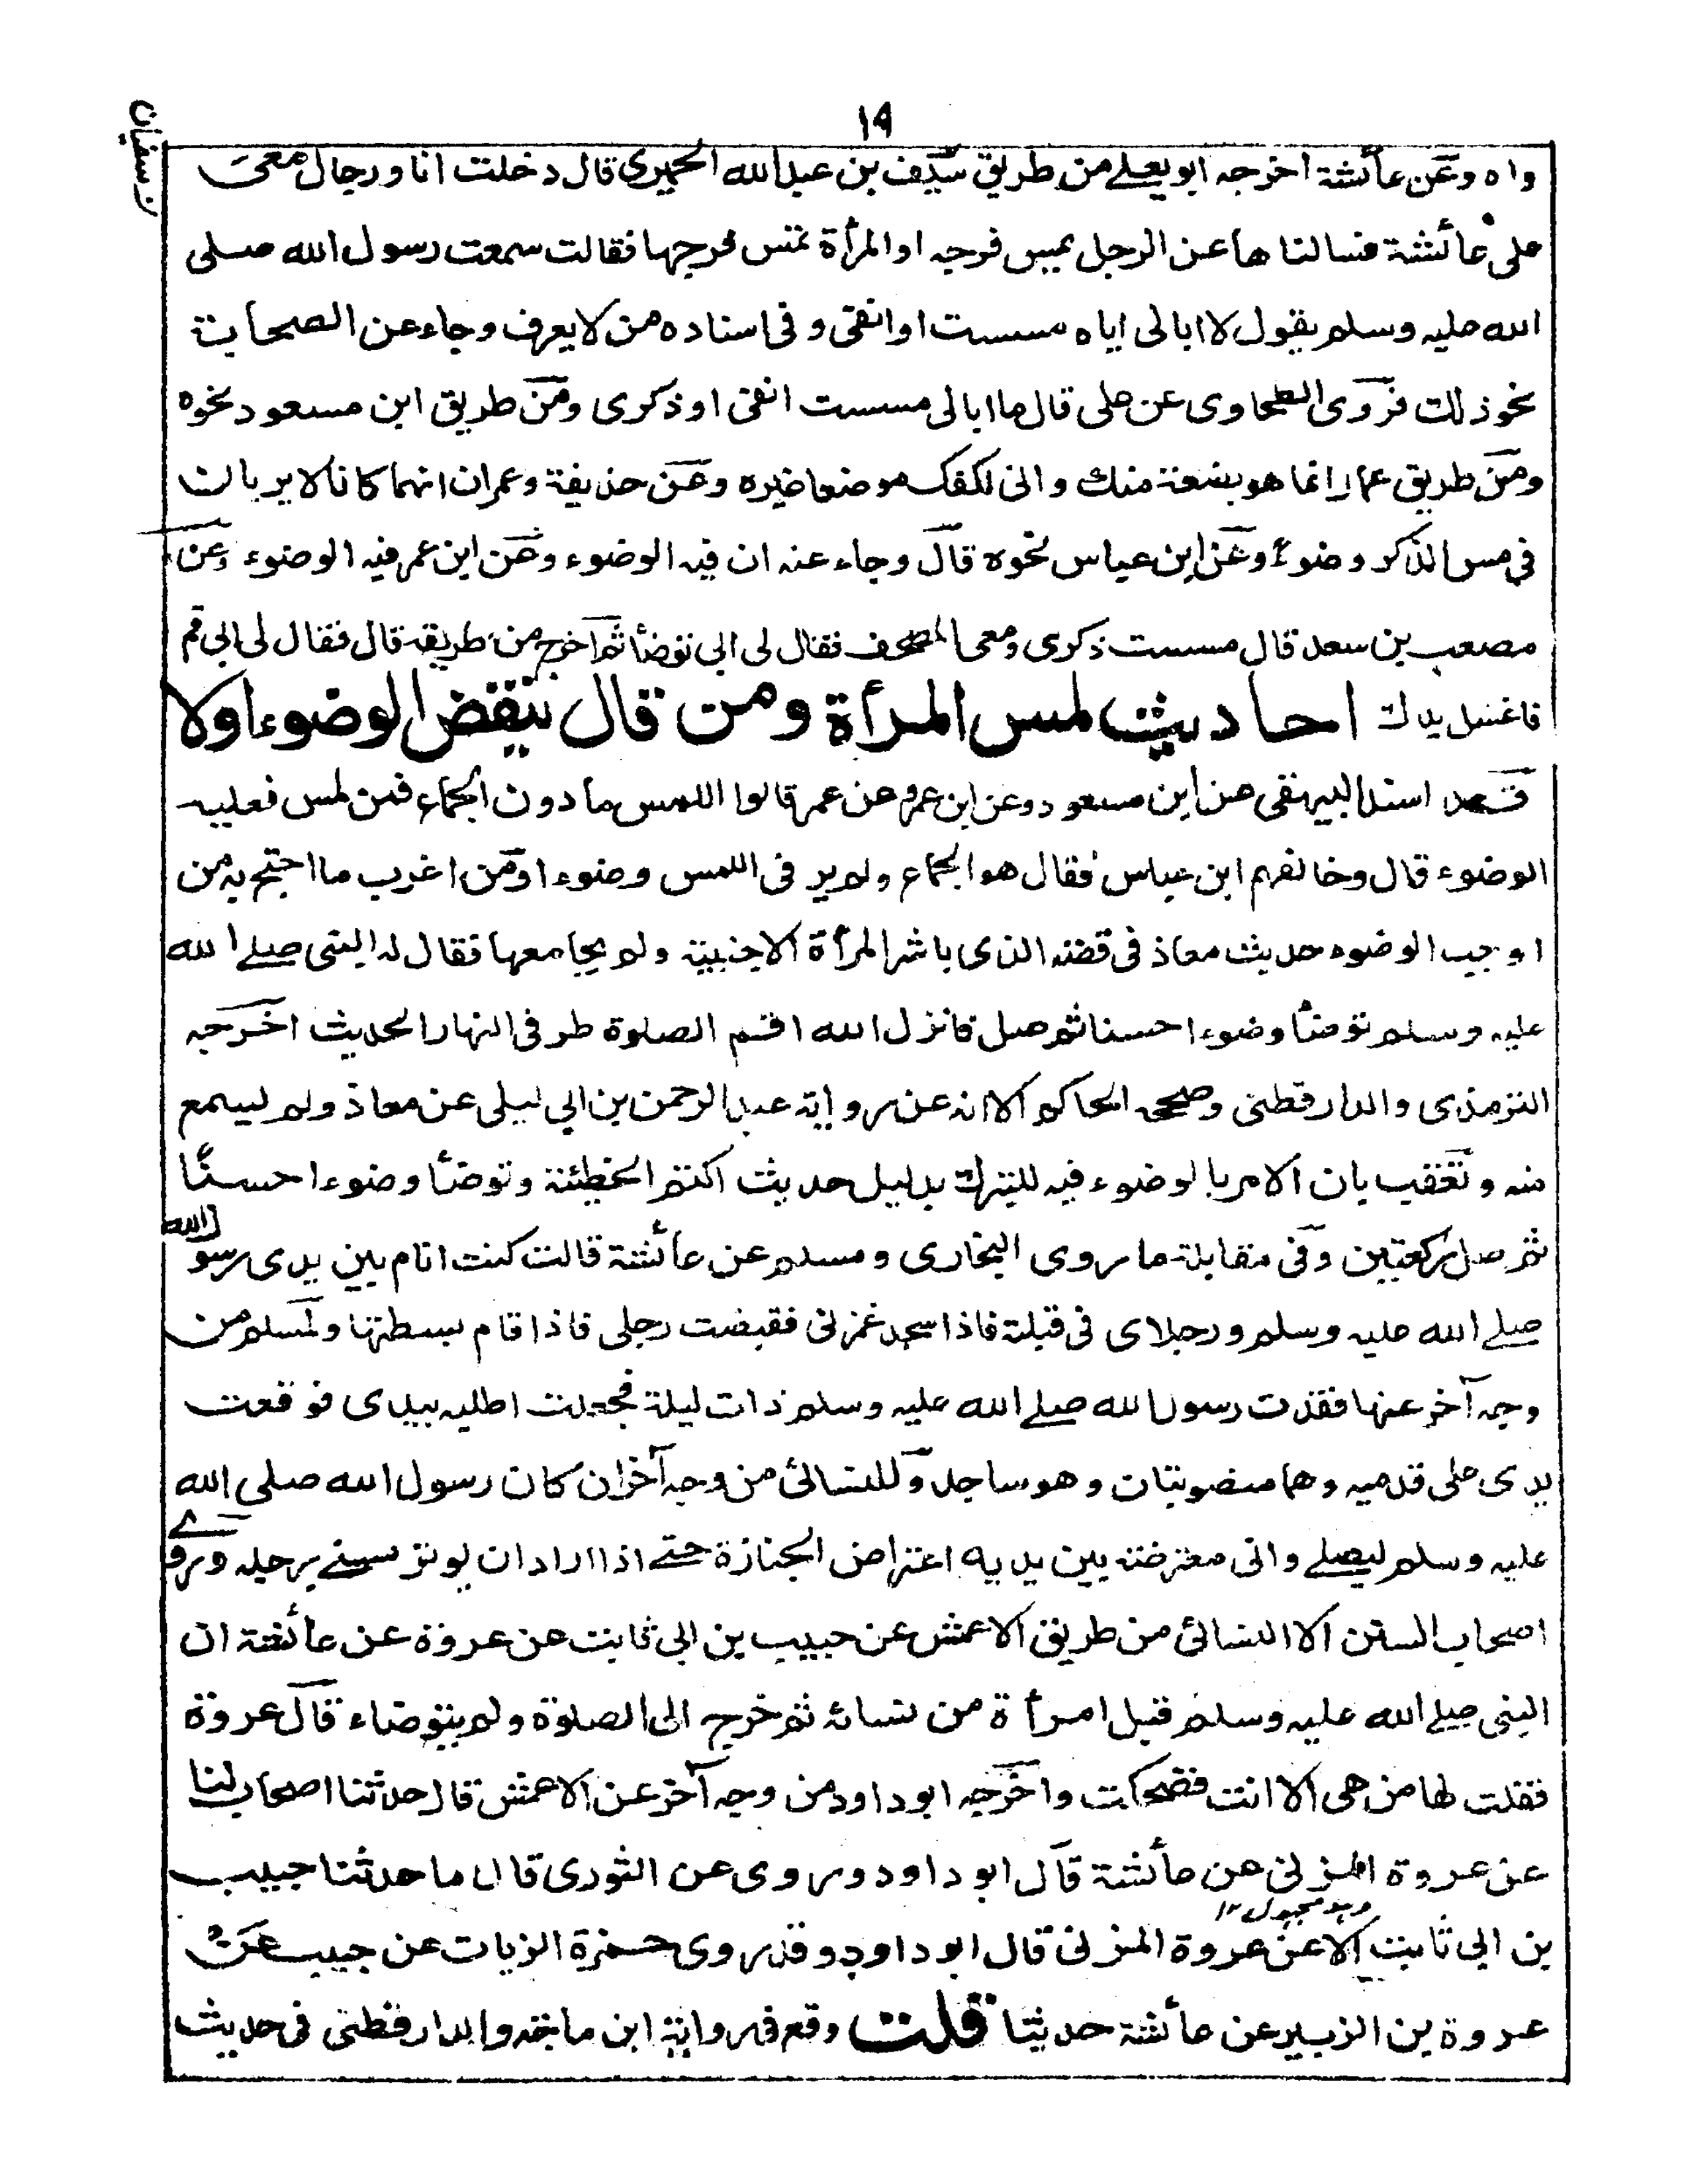 ١٩
واه وعن عائشة اخرجه ابو يعلے من طريق سيف بن عبدالله الحميري قال دخلت انا ورجال معى
على عائشة فسالناها عن الرجل يمس فرجه او المرأة تمس فرجها فقالت سمعت رسول الله صلى
الله عليه وسلم يقول لا ابالى اياه مسست او انفى و فى اسناده من لا يعرف وجاء عن الصحابة
نحو ذلك فروى الطحاوى عن على قال ما ابالى مسست انفى او ذكرى ومن طريق ابن مسعود نحوه
ومن طريق عمار انما هو بضعة منك وانى لكفك موضعا غيره وعن حذيفة وعمران انهما كانا لا يريان
فى مس الذكر وضوءً وعن ابن عباس نحوه قال وجاء عنه ان فيه الوضوء وعن ابن عمر فيه الوضوء وعن
مصعب بن سعد قال مسست ذكرى ومعى المصحف فقال لى ابى توضأ ثم اخرج من طريقه قال فقال لى ابى قم
فاغسل يدك احاديث لمس المرأة ومن قال ينقض الوضوء اولا
قد اسند البيهقى عن ابن مسعود وعن ابن عمرو عن عمر قالوا اللمس ما دون الجماع فمن لمس فعليه
الوضوء قال وخالفهم ابن عباس فقال هو الجماع ولم ير فى اللمس وضوءا ومن اغرب ما احتج به من
اوجب الوضوء حديث معاذ فى قصة الذى باشر المرأة الاجنبية ولم يجامعها فقال له النبى صلے الله
عليه وسلم توضأ وضوءا حسنا ثم صل فانزل الله اقم الصلوة طرفى النهار الحديث اخرجه
الترمذى والدارقطنى وصححه الحاكم الا انه عن رواية عبدالرحمن بن ابى ليلى عن معاذ ولم يسمع
منه وتعقب بان الامر بالوضوء فيه للتبرك بدليل حديث اكتم الخطيئة وتوضأ وضوءا حسنًا
ثم صل ركعتين وفى مقابلة ما روى البخارى ومسلم عن عائشة قالت كنت انام بين يدى رسول الله
صلے الله عليه وسلم ورجلاى فى قبلته فاذا سجد غمزنى فقبضت رجلى فاذا قام بسطتها ولمسلم من
وجه آخر عنها فقدت رسول الله صلے الله عليه وسلم ذات ليلة فجعلت اطلبه بيدى فوقعت
يدى على قدميه وهما منصوبتان وهو ساجد وللنسائى من وجه آخر ان كان رسول الله صلى الله
عليه وسلم ليصلے وانى معترضة بين يديه اعتراض الجنازة حتے اذا اراد ان يوتر مسنے برجله وروے
اصحاب السنن الا النسائى من طريق الاعمش عن حبيب بن ابى ثابت عن عروة عن عائشة ان
النبى صلے الله عليه وسلم قبل امرأة من نسائه ثم خرج الى الصلوة ولم يتوضاء قال عروة
فقلت لها من هى الا انت فضحكت واخرجه ابو داود من وجه آخر عن الاعمش قال حدثنا اصحاب لنا
عن عروة المزنى عن عائشة قال ابو داود وروى عن الثورى قال ما حدثنا حبيب
وهو مجهول ١٢
بن ابى ثابت الا عن عروة المزنى قال ابو داود وقد روى حمزة الزيات عن حبيب عن
عروة بن الزبير عن عائشة حديثا قلت وقع فى رواية ابن ماجه والدارقطنى فى حديث